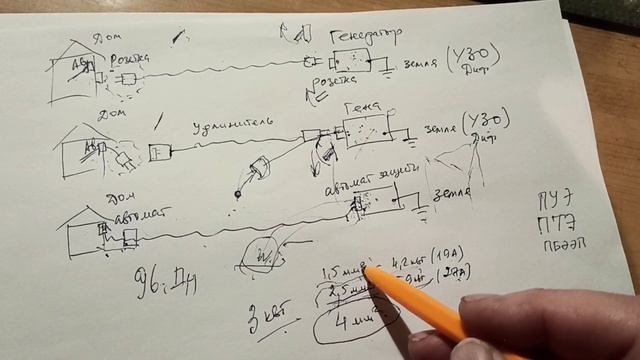 Дом
АВ
Розетка
Генератор
Земля (УЗО)
Диф.
Розетка
Дом
АВ
Удлинитель
Гена
земля (УЗО)
Диф
Дом
автомат
автомат защиты
земля
ПУЭ
ПТЭ
ПБЭЭП
1,5 мм² - 4,2 квт (19А)
2,5 мм
(27А)
3 квт
4 мм²